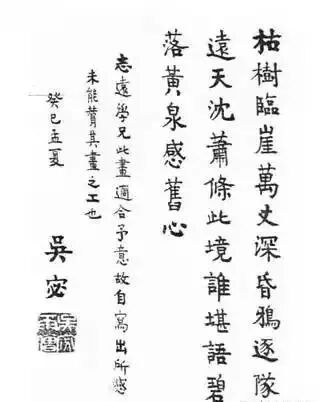 枯樹臨崖萬丈深昏鴉逐隊
遠天沈蕭條此境誰堪語碧
落黃泉感舊心
志遠學兄此畫適合予意故自寫出所感
未能贊其畫之工也
癸巳孟夏
吳宓